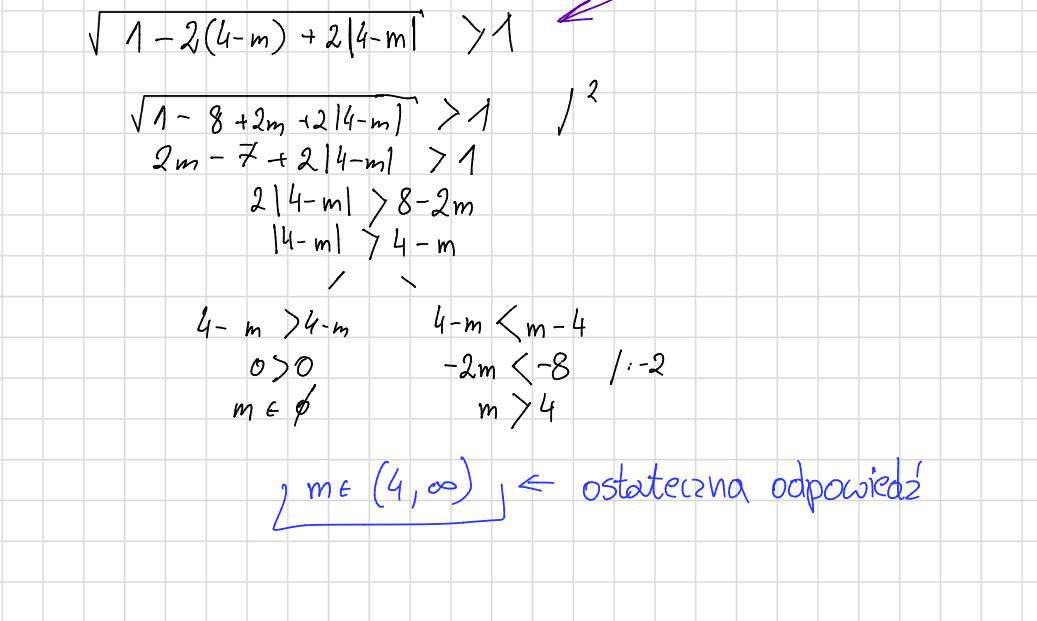 √(1-2(4-m)+2|4-m|) >1
√(1-8+2m+2|4-m|) >1 /²
2m-7+2|4-m| >1
2|4-m| >8-2m
|4-m| >4-m
4-m >4-m 4-m <m-4
0>0 -2m <-8 /:-2
m ∈ ∅ m >4
m∈ (4,∞) ← ostateczna odpowiedź